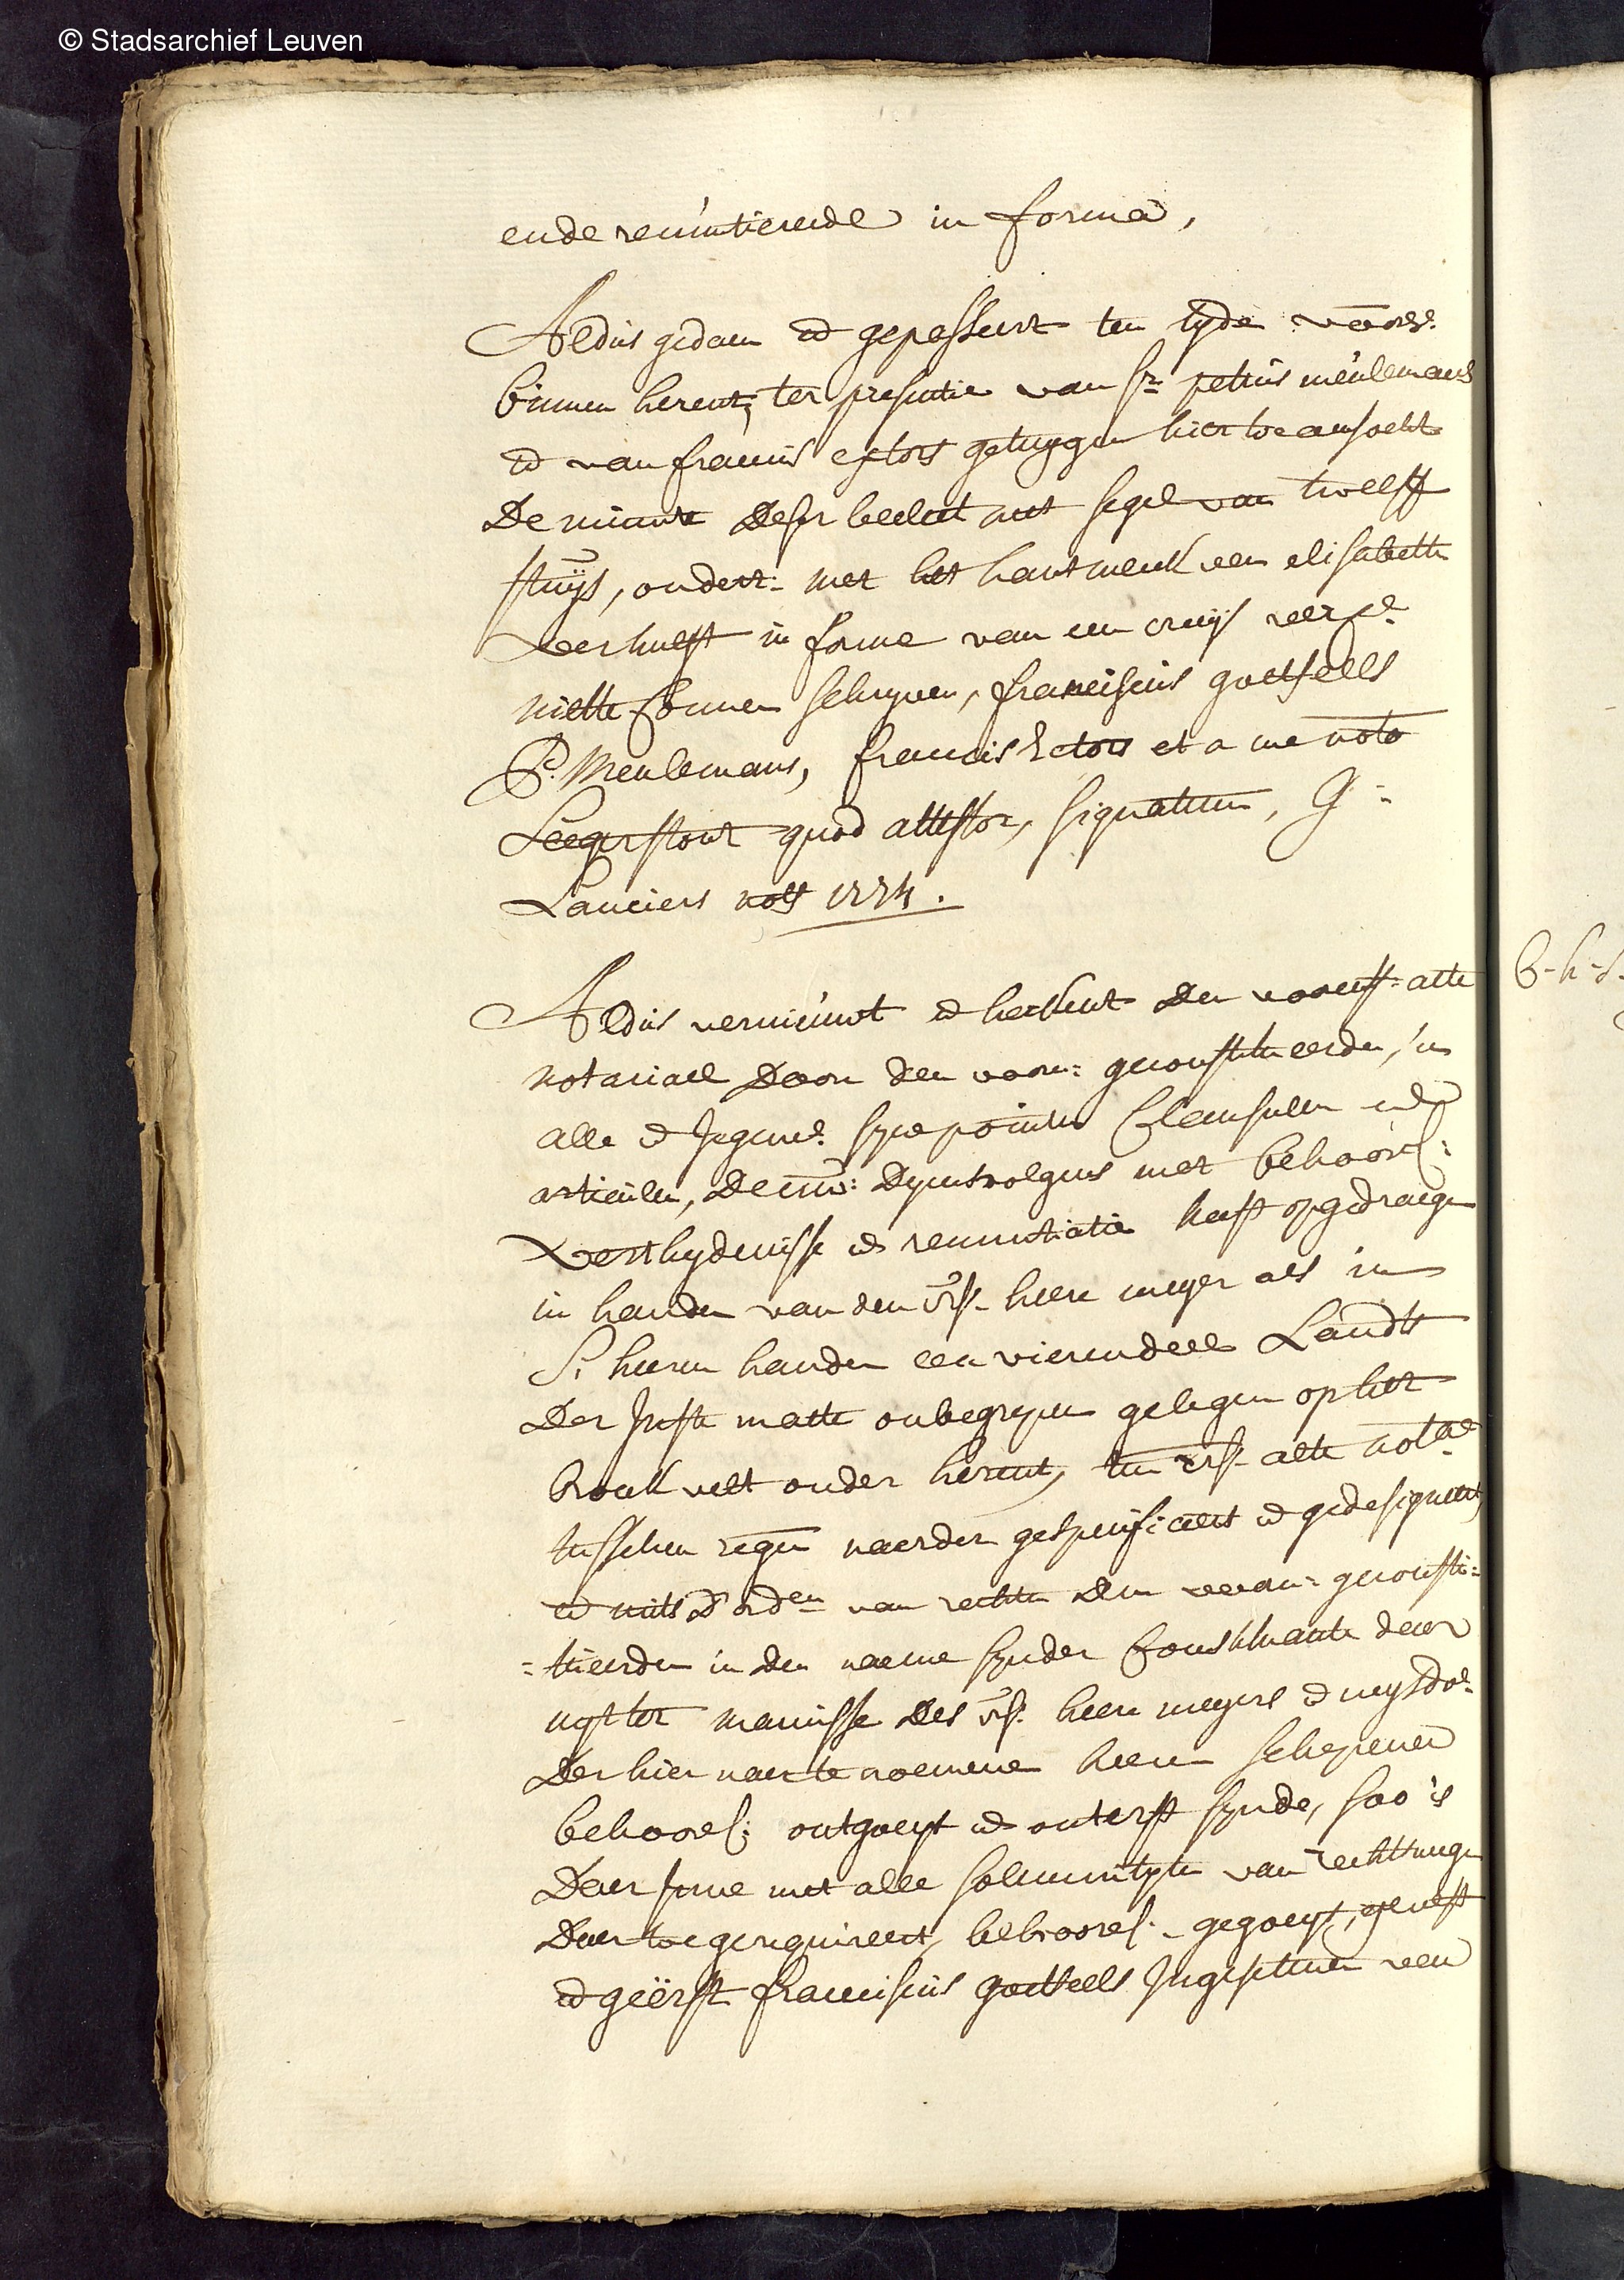 © Stadsarchief Leuven
ende renuntierende in forma,
Aldus gedaen ende gepasseert ten tyde voors:
binnen herent, ter presentie van sr petrus meulemans
ende van francis ectors getuygen hier toe aensocht
De minute deser becleet met segel van twelff
stuys, ondert: met het hantmerck van elisabeth
verhulst in forme van een cruys verse
niette connen schryven, franciscus goetseels
P. Meulemans, francis Ectors et a me noto
quod attestor, signatum, G:
Lauciers nots 1774.
Aldus vernieuwt ende herkent den voors: acte
notariael door den voorn: geconstitueerden, in
alle ende jegene syne pointen Clausulen ende
articulen, Deenw: dyenvolgens met behoorl:
verthydenisse ende renuntiatie heeft opgedraegen
in handen van den vs. heere meyer als in
S: heeren handen een vierendeel Landts
Der juste matte onbegrepen gelegen op het
brouck velt onder herent, ten vs. acte notle
tusschen regen naerder gespecificeert ende gedesigneert,
ende mits d'orden van rechte den voorn: geconsti=
=tueerden in den naeme synder Constituante daer
uyt ter manisse des vs. heere meyers ende wysdoe
Der hier naer te noemene heeren schepenen
behoorl: ontgoeyt ende onterft synde, soo is
Daer inne met alle solemniteyten van rechtwege
Daer toe gerequireert, behoorl: gegoeyt, gevest
ende geërft franciscus goetseels Ingesetenen van
B-h-s